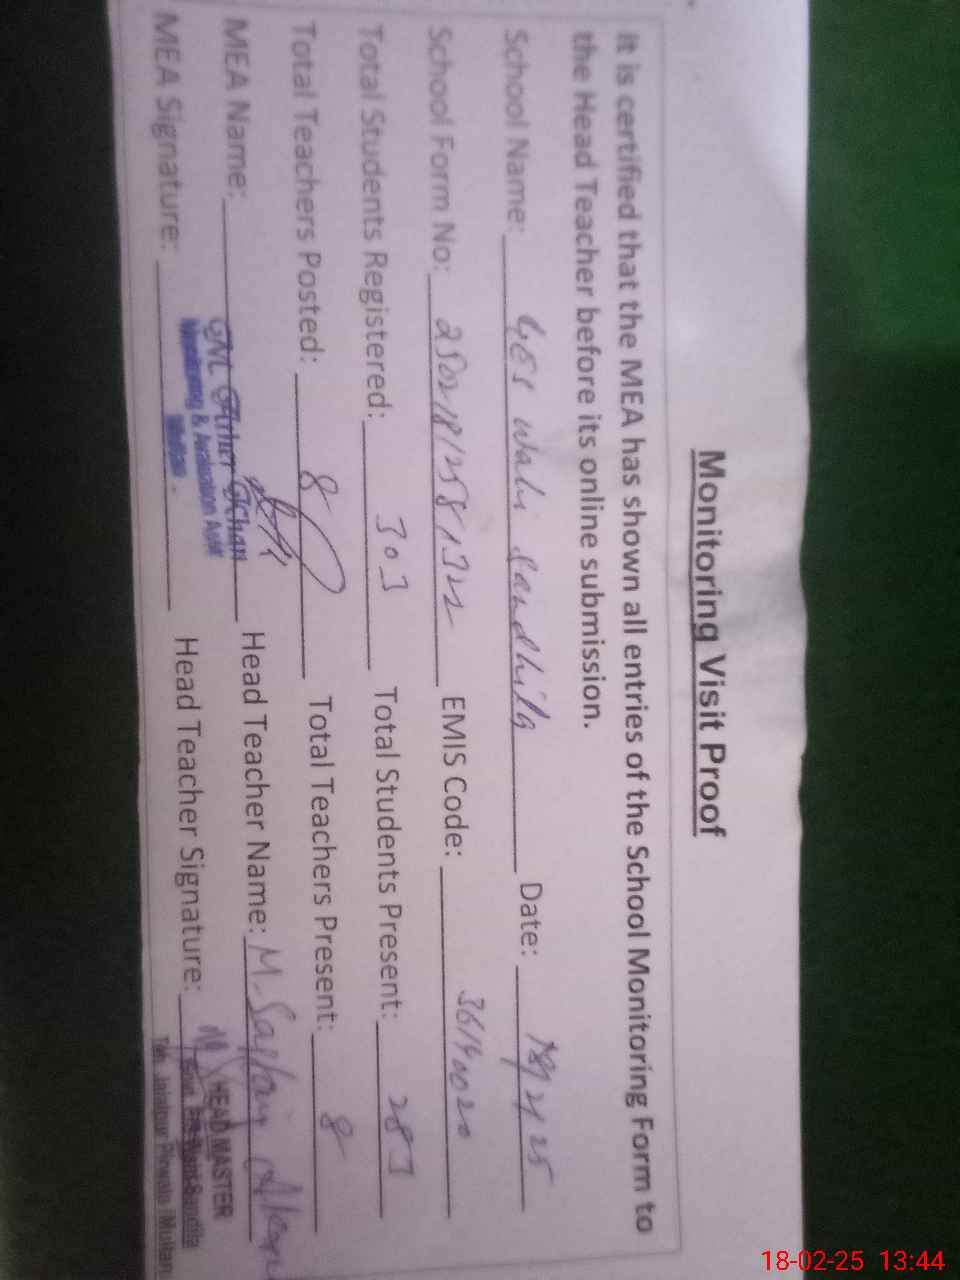 Monitoring Visit Proof
It is certified that the MEA has shown all entries of the School Monitoring Form to
the Head Teacher before its online submission.
School Name: GES Wahi Sandhila Date: 18/2/25
School Form No: EMIS Code: 36140020
Total Students Registered: 303 Total Students Present: 283
Total Teachers Posted: 8 Total Teachers Present: 8
MEA Name: Head Teacher Name: M.
MEA Signature: Head Teacher Signature:
Monitoring & Evaluation
Multan
HEAD MASTER
Jalalpur Pirwala (Multan
18-02-25 13:44